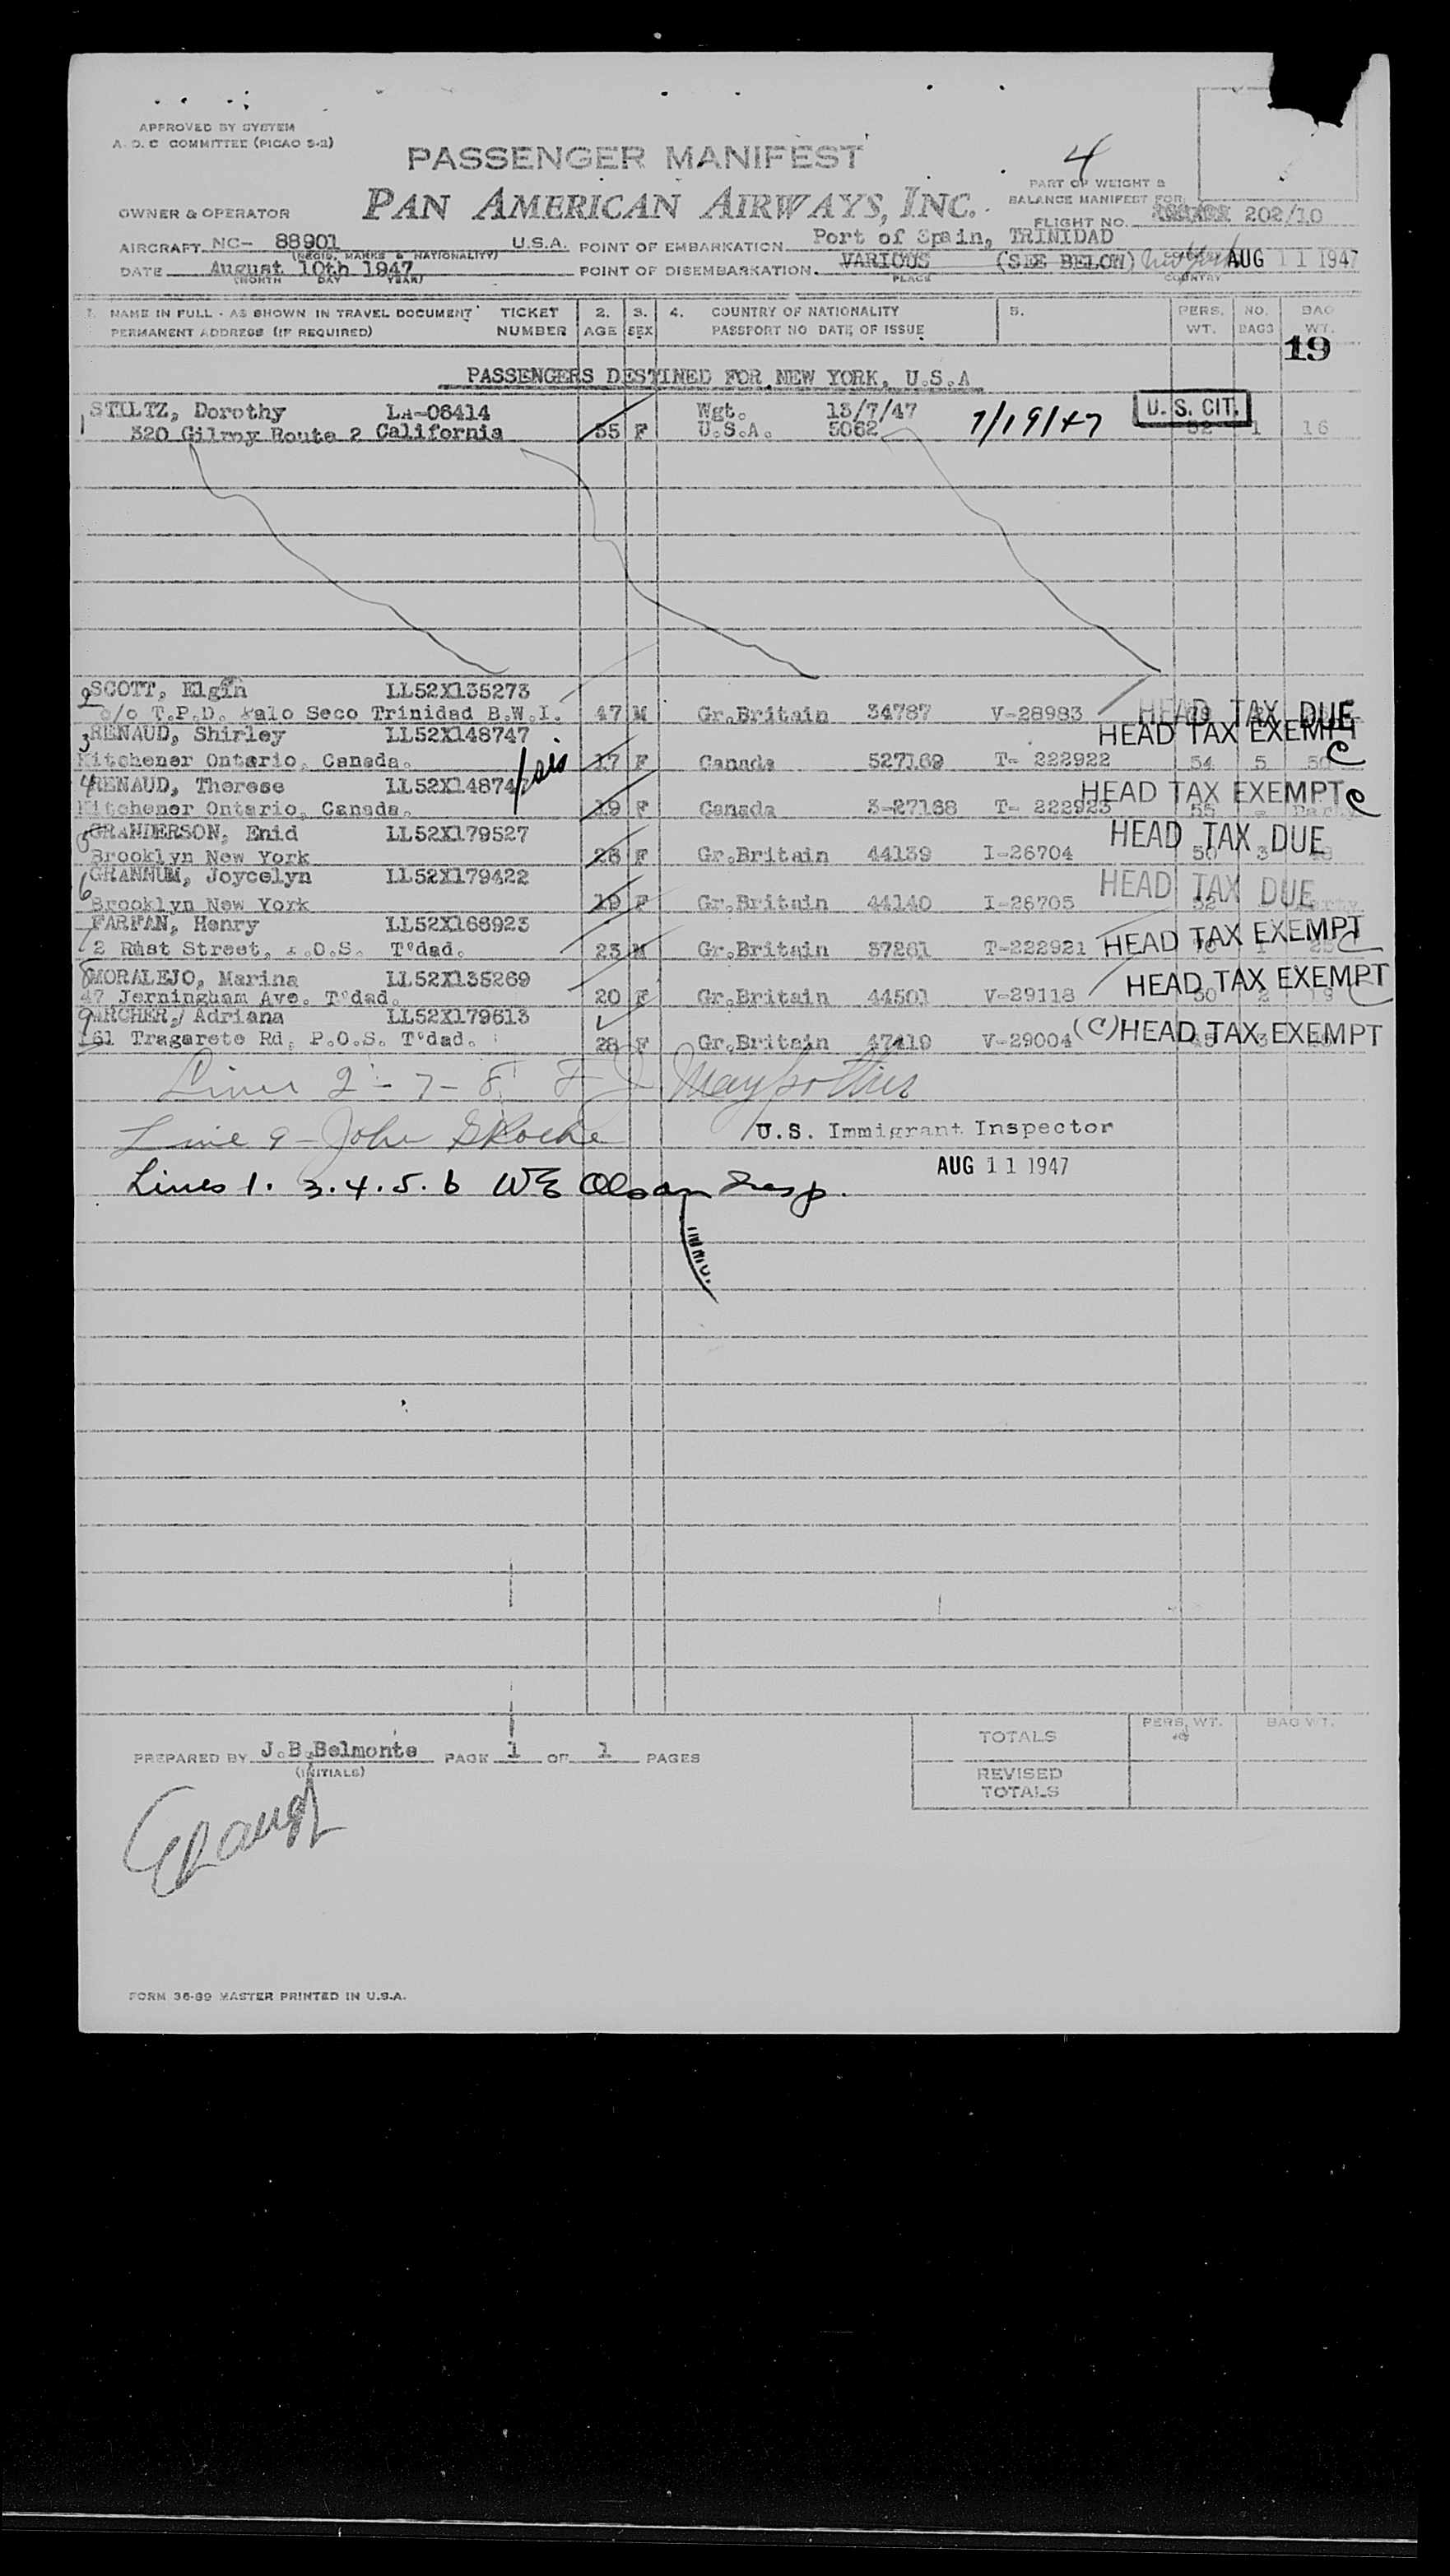 APPROVED BY SYSTEM
A.O.C COMMITTEE (PICAO S-2)
PASSENGER MANIFEST
4
PART OF WEIGHT &
BALANCE MANIFEST FOR
OWNER & OPERATOR
PAN AMERICAN AIRWAYS, INC.
FLIGHT NO. 202/10
AIRCRAFT NC- 88901 U.S.A. POINT OF EMBARKATION Port of Spain, TRINIDAD
(REGIS. MARKS & NATIONALITY)
DATE August 10th 1947 POINT OF DISEMBARKATION. VARIOUS (SEE BELOW) New York AUG 11 1947
(MONTH DAY YEAR) PLACE COUNTRY
1. NAME IN FULL - AS SHOWN IN TRAVEL DOCUMENT TICKET 2. 3. 4. COUNTRY OF NATIONALITY 5. PERS. NO. BAG
PERMANENT ADDRESS (IF REQUIRED) NUMBER AGE SEX PASSPORT NO DATE OF ISSUE WT. BAGS WT.
19
PASSENGERS DESTINED FOR NEW YORK, U.S.A
1 STILTZ, Dorothy LA-06414 Wgt. 13/7/47 7/19/47 U. S. CIT.
320 Gilroy Route 2 California 35 F U.S.A. 5062 52 1 16
2 SCOTT, Elgin LL52X135273
c/o T.P.D. Palo Seco Trinidad B.W.I. 47 M Gr.Britain 34787 V-28983 HEAD TAX DUE
3 RENAUD, Shirley LL52X148747 HEAD TAX EXEMPT
Kitchener Ontario, Canada. 17 F Canada 527169 T- 222922 54 5 50 C
4 RENAUD, Therese LL52X14874 HEAD TAX EXEMPT C
Kitchener Ontario, Canada. 19 F Canada 3-27168 T- 222923 55 - Party
5 GRANDERSON, Enid LL52X179527 HEAD TAX DUE
Brooklyn New York 26 F Gr.Britain 44139 I-26704 50 3
6 GRANNUM, Joycelyn LL52X179422 HEAD TAX DUE
Brooklyn New York 19 F Gr.Britain 44140 I-26705 52 Party
7 FARFAN, Henry LL52X168923
2 Rust Street, P.O.S. T'dad. 23 M Gr.Britain 37261 T-222921 HEAD TAX EXEMPT C
8 MORALEJO, Marina LL52X135269
47 Jerningham Ave. T'dad. 20 F Gr.Britain 44501 V-29118 HEAD TAX EXEMPT 50 2 19 C
9 ARCHER, Adriana LL52X179613
161 Tragarete Rd, P.O.S. T'dad. 28 F Gr.Britain 47419 V-29004 (C) HEAD TAX EXEMPT 45 3
Lines 2 - 7 - 8
Line 9 - John Roche U.S. Immigrant Inspector
AUG 11 1947
Lines 1. 3. 4. 5. 6 WE Olsan Insp.
IMMIG.
PREPARED BY J.B.Belmonte PAGE 1 OF 1 PAGES
(INITIALS)
TOTALS PERS. WT. BAG WT.
REVISED
TOTALS
FORM 36-89 MASTER PRINTED IN U.S.A.